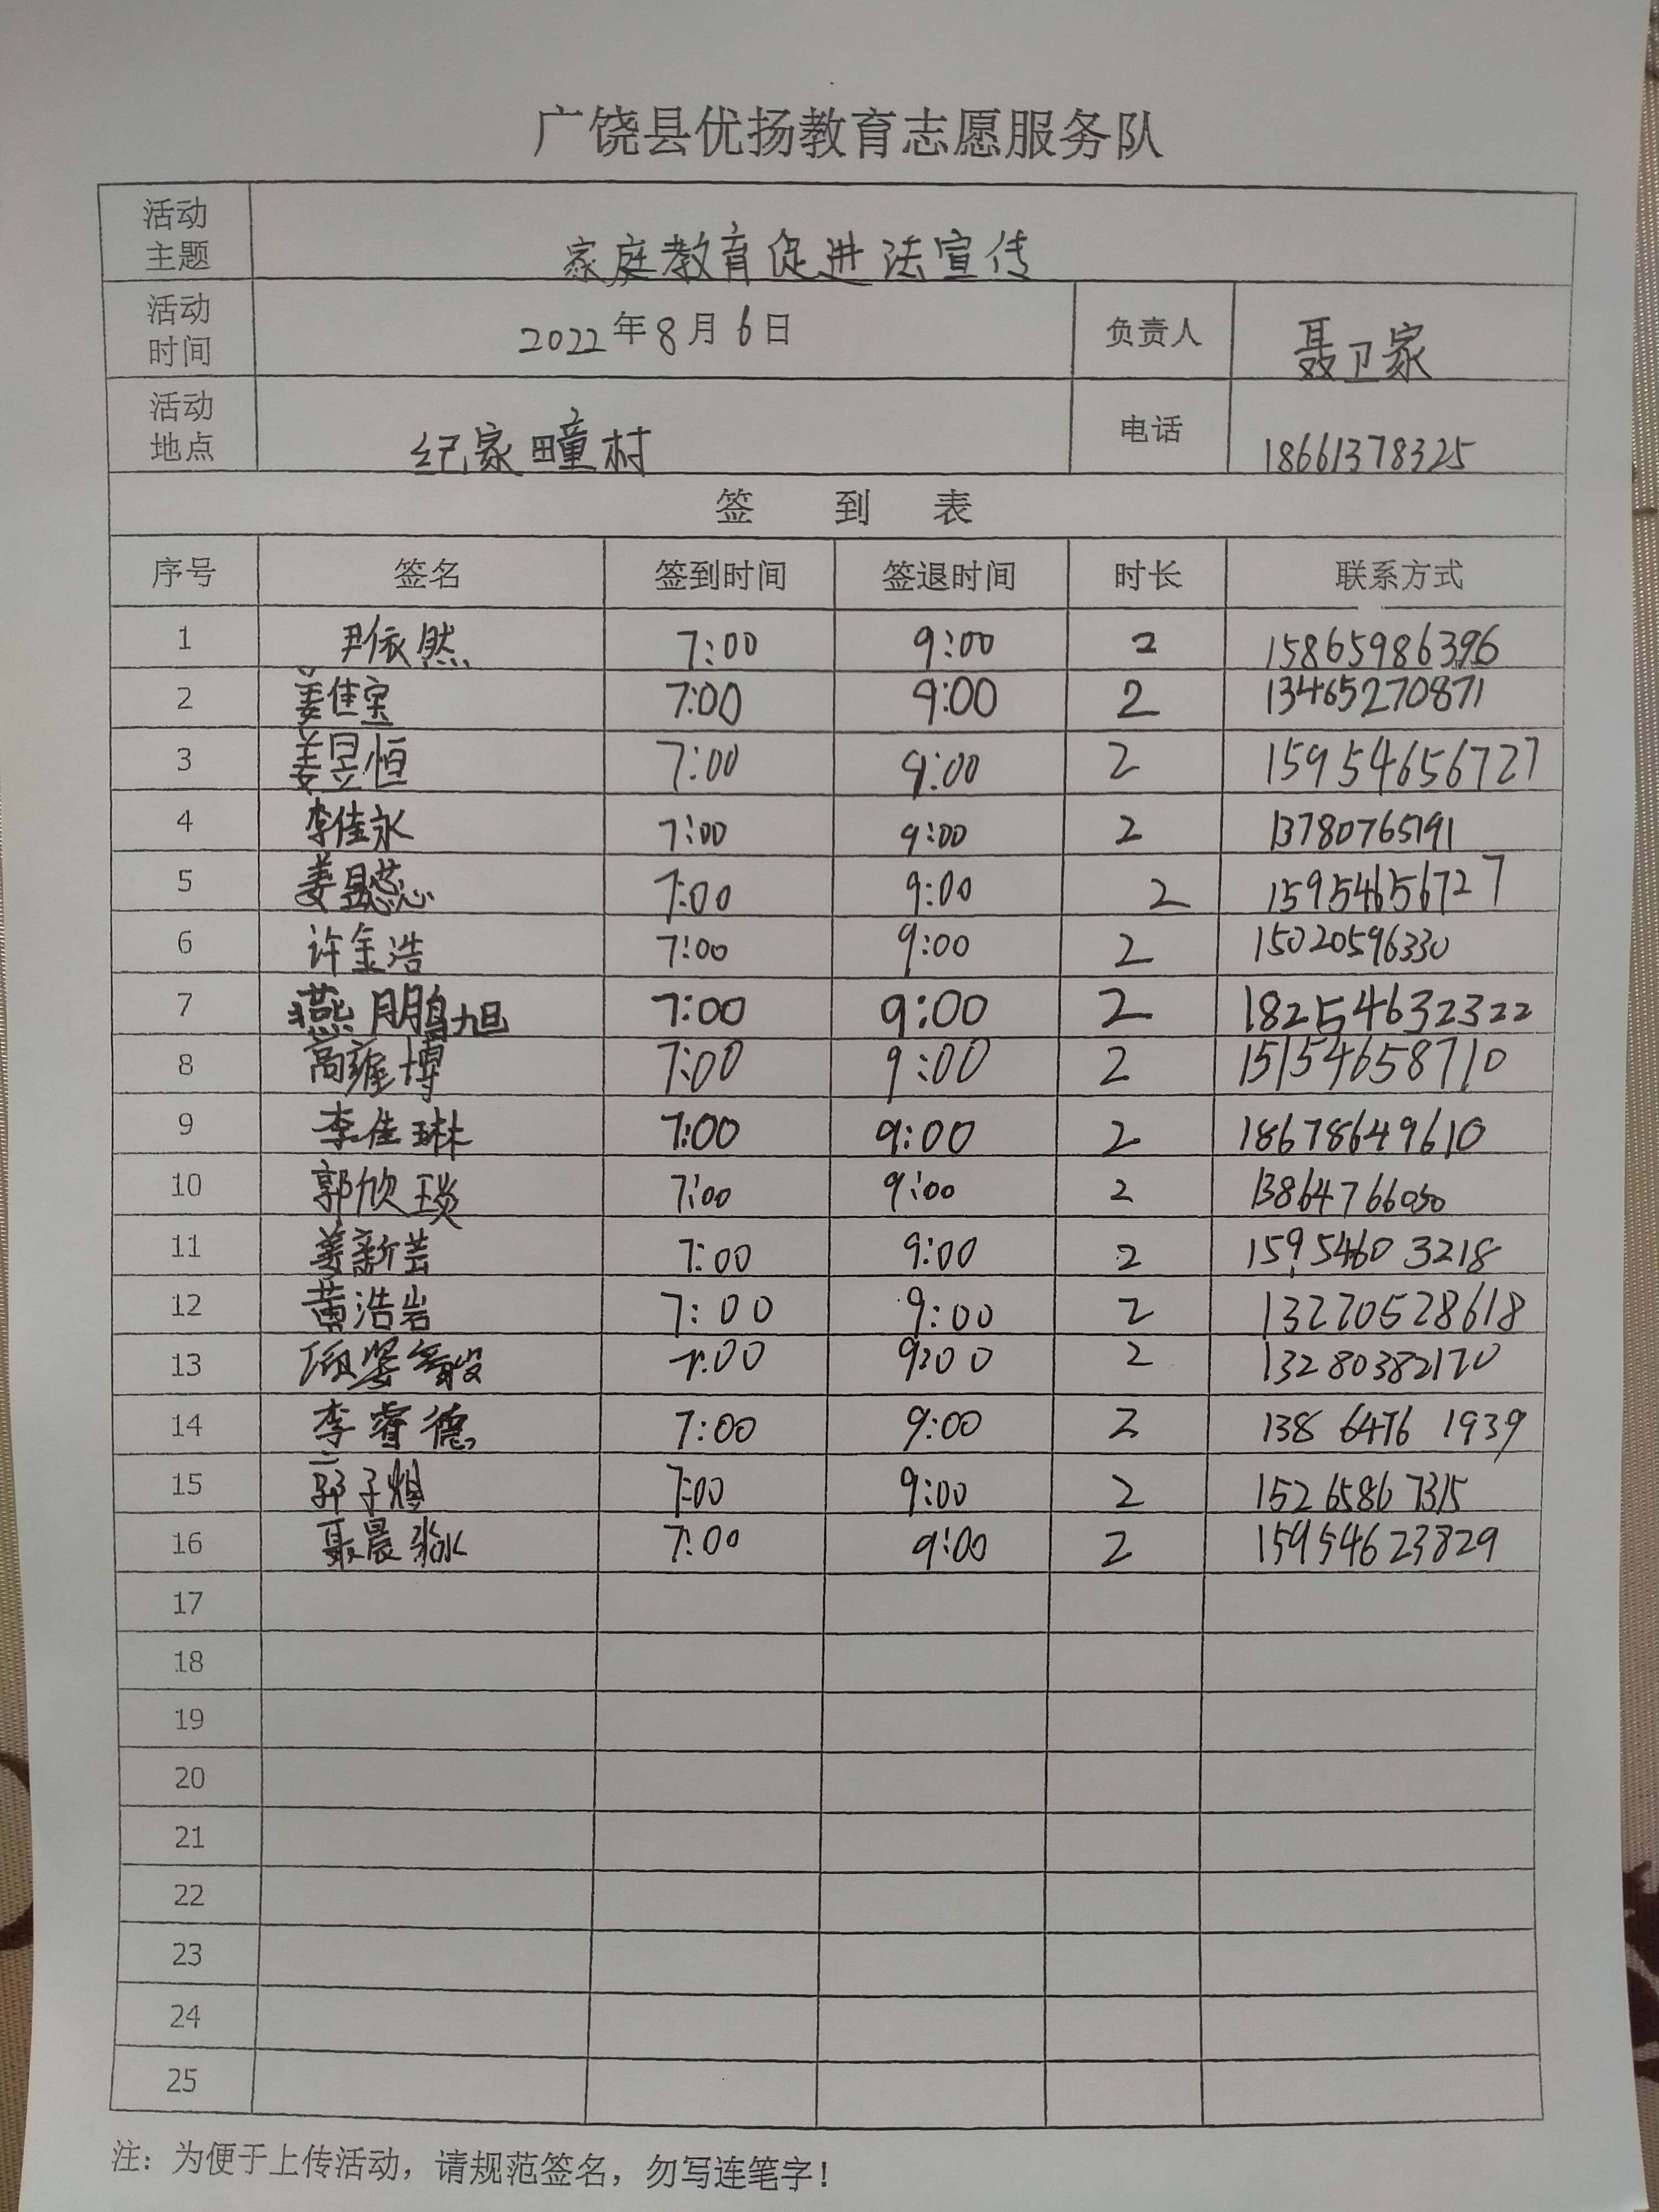 广饶县优扬教育志愿服务队
活动主题 家庭教育促进法宣传
活动时间 2022年8月6日 负责人 聂卫家
活动地点 纪家疃村 电话 18661378325
签 到 表
序号 签名 签到时间 签退时间 时长 联系方式
1 尹依然 7:00 9:00 2 15865986396
2 姜佳宝 7:00 9:00 2 13465270871
3 姜昱恒 7:00 9:00 2 15954656727
4 李佳永 7:00 9:00 2 13780765191
5 姜昱蕊 7:00 9:00 2 15954656727
6 许金浩 7:00 9:00 2 15020596330
7 燕鹏旭 7:00 9:00 2 18254632322
8 高雍博 7:00 9:00 2 15154658710
9 李佳琳 7:00 9:00 2 18678649610
10 郭欣琰 7:00 9:00 2 13864766050
11 姜新芸 7:00 9:00 2 15954603218
12 黄浩岩 7:00 9:00 2 13220528618
13 7:00 9:00 2 13280382170
14 李睿德 7:00 9:00 2 138 6476 1939
15 郭子煜 7:00 9:00 2 15265867315
16 聂晨淼 7:00 9:00 2 15954623829
17
18
19
20
21
22
23
24
25
注：为便于上传活动，请规范签名，勿写连笔字！